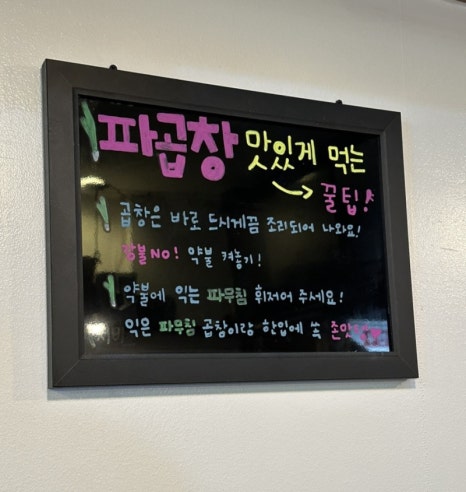 파곱창 맛있게 먹는
꿀팁!
곱창은 바로 드시게끔 조리되어 나와요!
강불NO! 약불 켜놓기!
약불에 익는 파무침 휘저어 주세요!
익은 파무침 곱창이랑 한입에 쏙